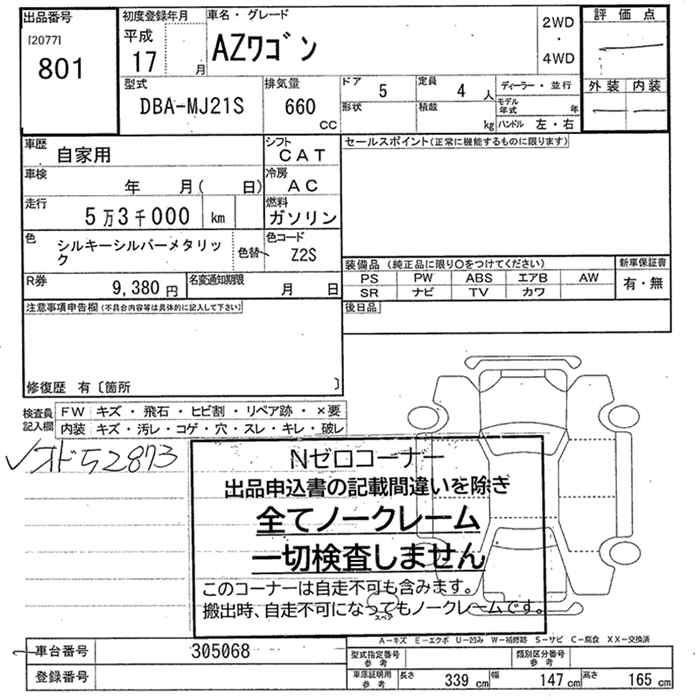 出品番号
[2077]
801
初度登録年月
平成
17 月
車名・グレード
AZワゴン
2WD
・
4WD
評価点
外装 内装
型式
DBA-MJ21S
排気量
660
CC
ドア 5
定員 4 人
形状
積載 kg
ディーラー・並行
モデル年式 年
ハンドル 左・右
車歴
自家用
シフト
CAT
車検
年 月( 日)
冷房
AC
走行
5万3千000 km
燃料
ガソリン
色
シルキーシルバーメタリッ
ク
色替
色コード
Z2S
R券
9,380 円
名変通知期限
月 日
セールスポイント(正常に機能するものに限ります)
装備品 (純正品に限り○をつけてください)
PS PW ABS エアB AW
SR ナビ TV カワ
新車保証書
有・無
後日品
注意事項申告欄(不具合内容等は具体的に記入して下さい)
修復歴 有〔箇所 〕
検査員
記入欄
FW キズ・飛石・ヒビ割・リペア跡・×要
内装 キズ・汚レ・コゲ・穴・スレ・キレ・破レ
✓オド52873
Nゼロコーナー
出品申込書の記載間違いを除き
全てノークレーム
一切検査しません
このコーナーは自走不可も含みます。
搬出時、自走不可になってもノークレームです。
スペア
A-キズ E-エクボ U-凹み W-補修跡 S-サビ C-腐食 XX-交換済
車台番号
305068
登録番号
型式指定番号
参考
類別区分番号
参考
車庫証明用
参考
長さ 339 cm 幅 147 cm 高さ 165 cm